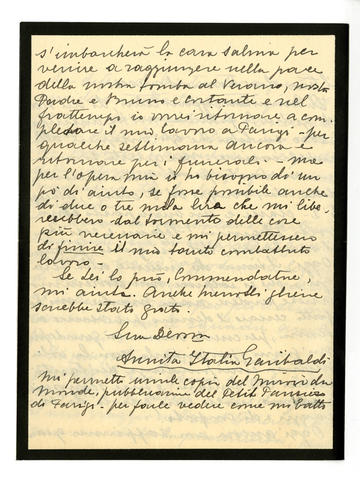 s'imbarcherà la cara salma per
venire a raggiungere nella pace
della nostra tomba al Verano, nostro
Padre e Bruno e intanto e nel
frattempo io vorrei ritornare a com
pletare il mio lavoro a Parigi - per
qualche settimana ancora e
ritornare per i funerali. - ma
per l'opera mia io ho bisogno di un
pò di aiuto, se fosse possibile anche
di due o tre mila lire che mi libe
rerebbero dal tormento delle cose
più necessarie e mi permettessero
di finire il mio tanto combattuto
lavoro -
Se Lei lo può, Commendatore,
mi aiuti. Anche mensile gliene
sarebbe stato grato.
Sua Dev.ma
Annita Italia Garibaldi
Mi permetto unirle copia del Miroir du
Monde, pubblicazione del Petit Parisien
di Parigi - per farle vedere come mi batto